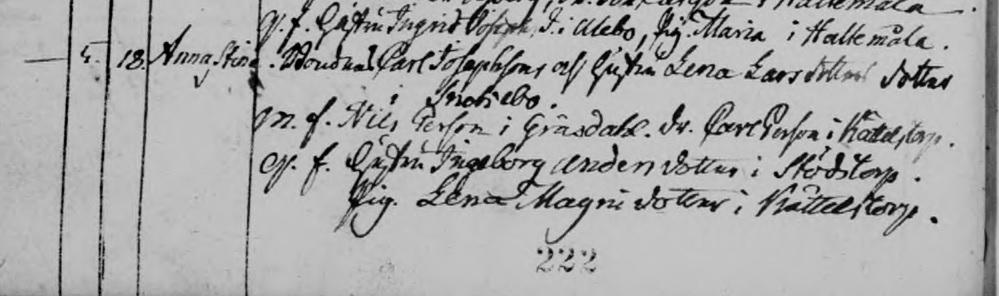 Q. f. Hustru Ingrid Joseph. D. i Alebo, Pig. Maria i Haltemåla.
— 5. 18. Anna Stina. Bondens Carl Josephsons och Hustru Lena Larsdotters dotter
i
M. f. Nils Person i Gräsdahl. dr. Carl Person i Kättelstorp.
Q. f. Hustru Ingeborg dotter i Stödstorp.
Pig. Lena Magni dotter i Kättelstorp.
222